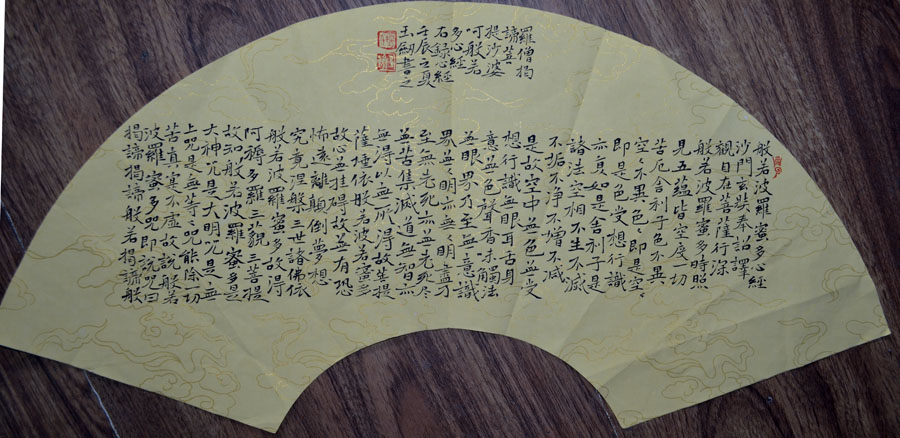 般若波羅蜜多心經
沙門玄奘奉詔譯
觀自在菩薩行深
般若波羅蜜多時照
見五蘊皆空度一切
苦厄舍利子色不異
空々不異色々即是空々
即是色受想行識
亦复如是舍利子是
諸法空相不生不滅
不垢不淨不增不減
是故空中無色無受
想行識無眼耳舌身
意無色聲香味觸法
無眼界乃至無意識
界無々明亦無々明盡乃
至無老死亦無老死尽
無苦集滅道無智亦
無得以無所得故菩提
薩埵依般若波羅蜜多
故心無挂碍故無有恐
怖遠離顛倒夢想
究竟涅槃三世諸佛依
般若波羅蜜多故得
阿耨多羅三藐三菩提
故知般若波羅蜜多是
大神咒是大明咒是無
上咒是無等咒能除一切
苦真實不虛故說般若
波羅蜜多咒即說咒曰
揭諦揭諦般若揭諦般
羅僧揭
諦菩
提沙婆
可般若
多心經
石錄心經
壬辰之夏
王劍書之